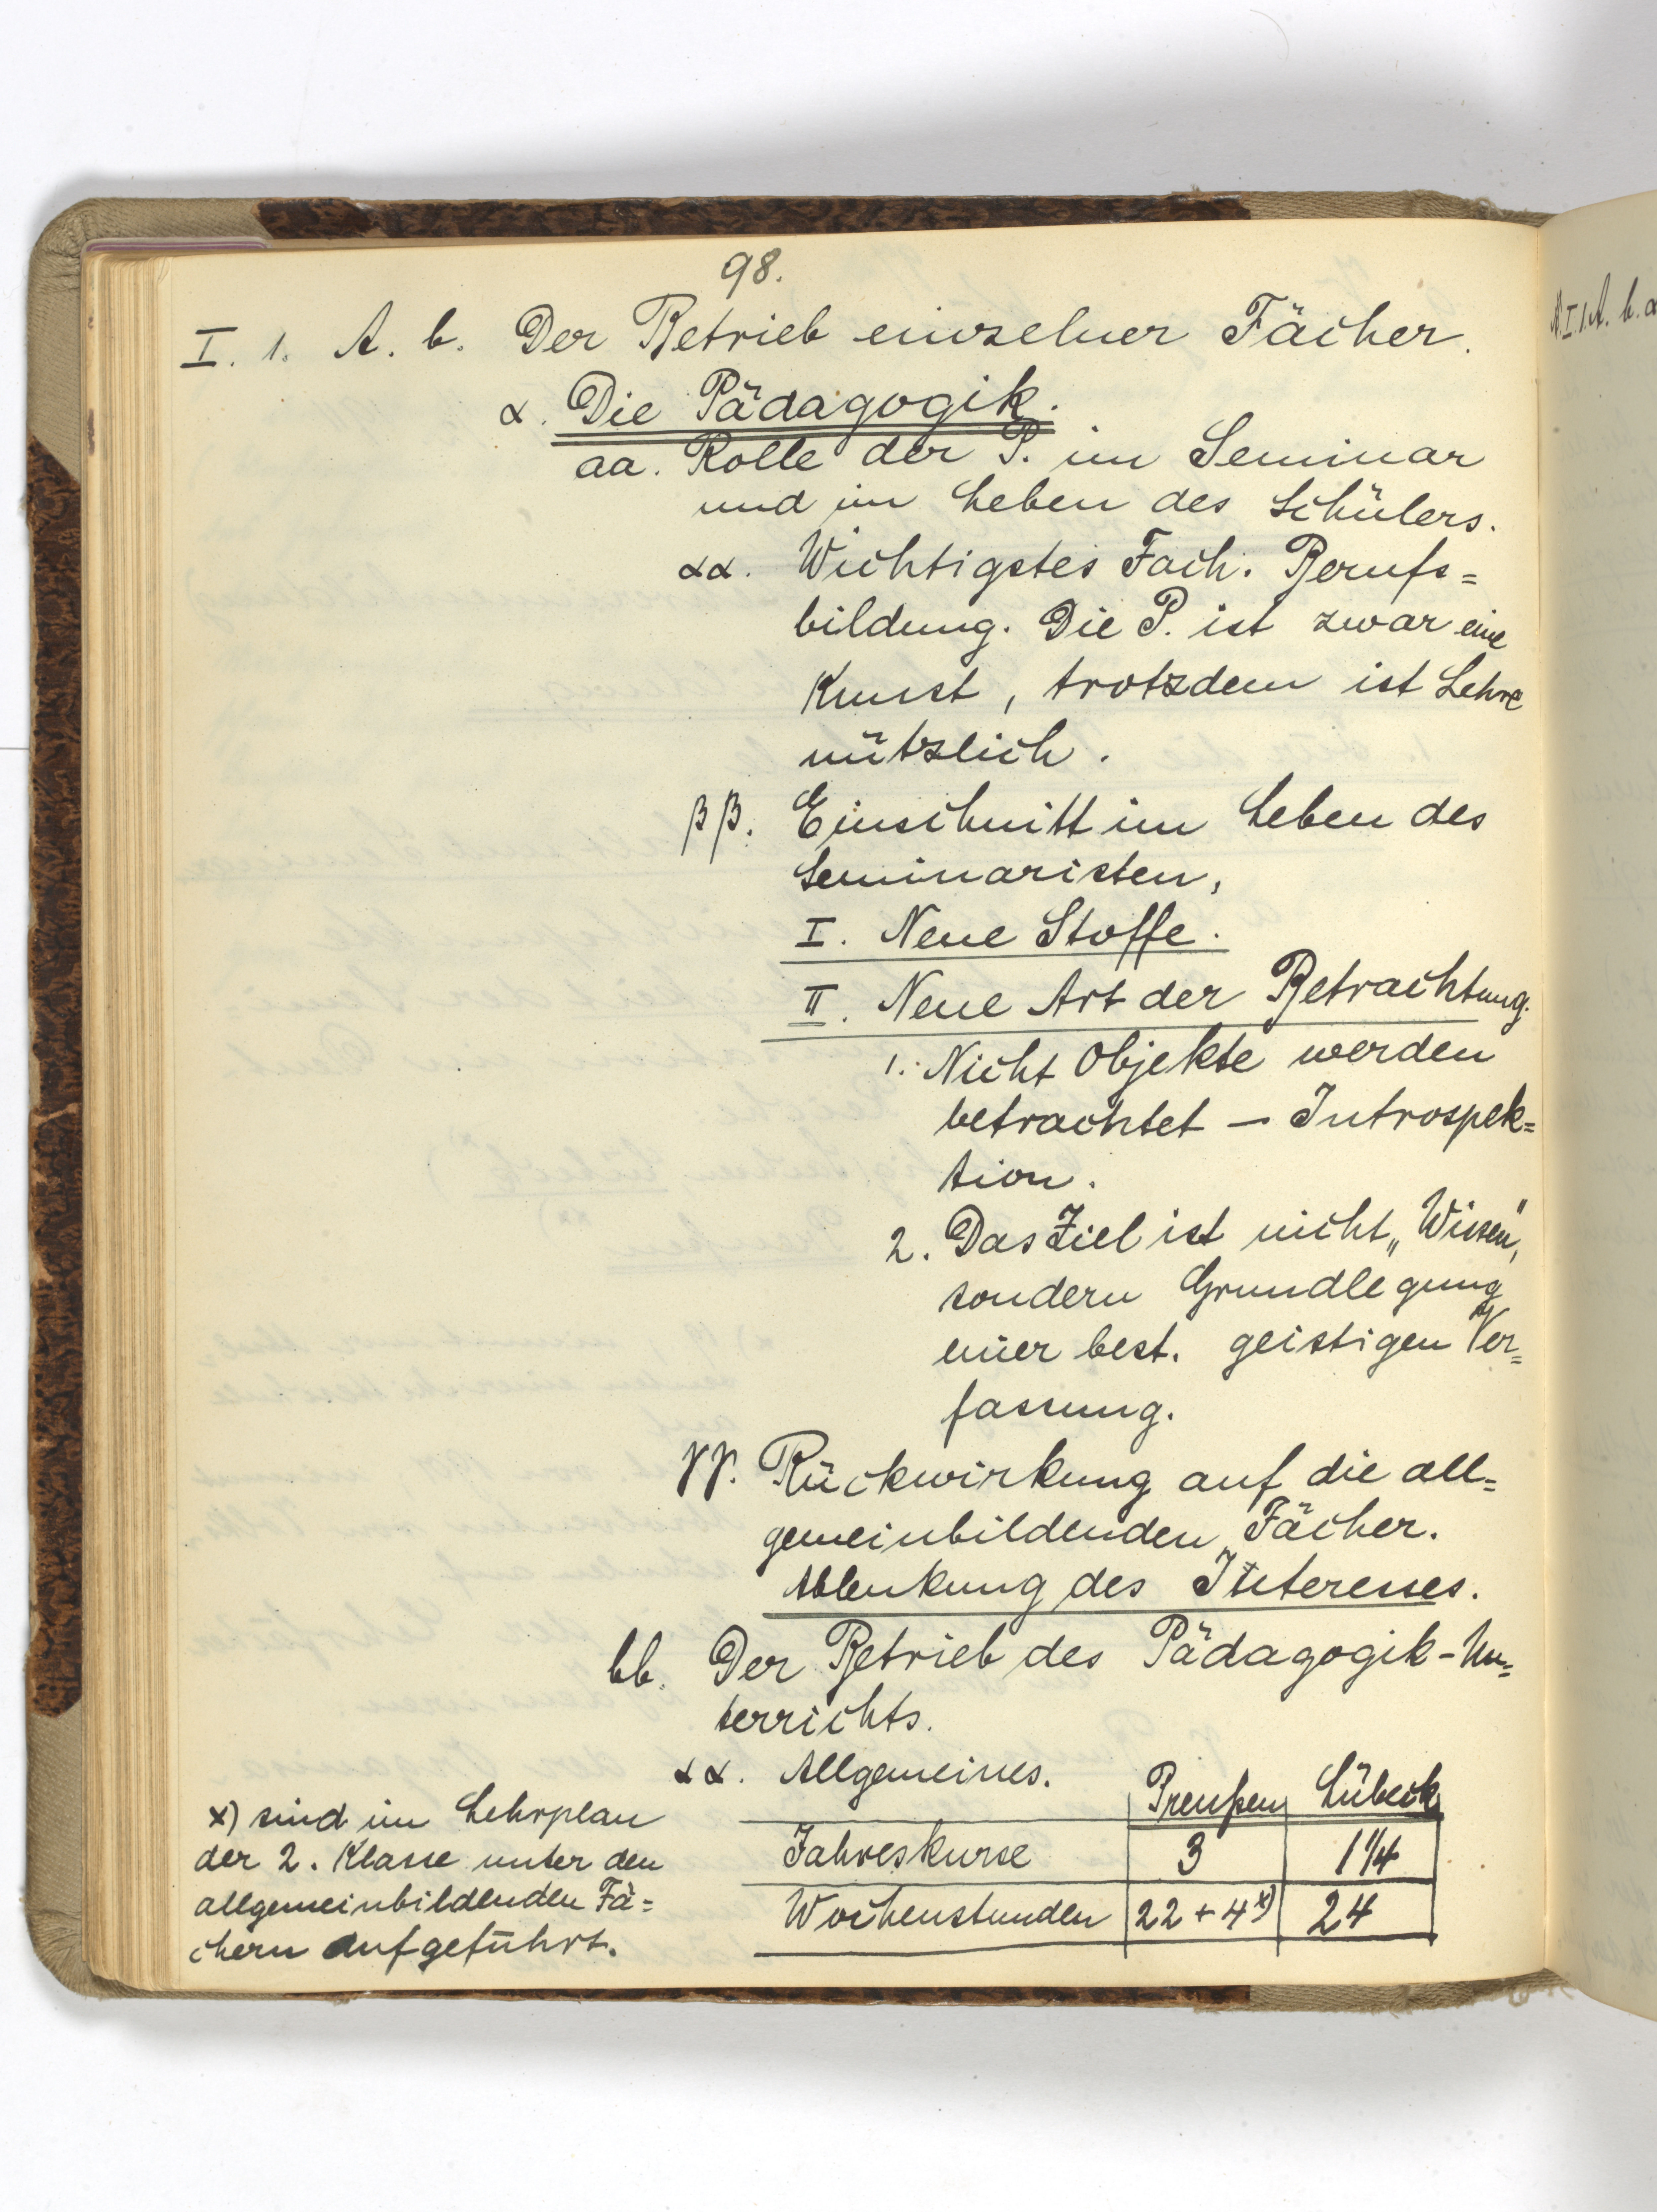 98.
I. 1. A. b. Der Betrieb einzelner Fächer.
α. Die Pädagogik.
aa. Rolle der P. im Seminar
und im Leben des Schülers.
αα. Wichtigstes Fach. Berufs=
bildung. Die P. ist zwar eine
Kunst, trotzdem ist Lehre
nützlich.
ββ. Einschnitt im Leben des
Seminaristen,
I. Neue Stoffe.
II. Neue Art der Betrachtung.
1. Nicht Objekte werden
betrachtet – Introspek=
tion.
2. Das Ziel ist nicht „Wissen“,
sondern Grundlegung
einer best. geistigen Ver=
fassung.
γγ. Rückwirkung auf die all=
gemeinbildenden Fächer.
Ablenkung des Interesses.
bb. Der Betrieb des Pädagogik-Un=
terrichts.
αα. Allgemeines.
Preußen Lübeck
Jahreskurse 3 1 1/4
Wochenstunden 22 + 4 x) 24
x) sind im Lehrplan
der 2. Klasse unter den
allgemeinbildenden Fä=
chern aufgeführt.
I 1 A. b. α